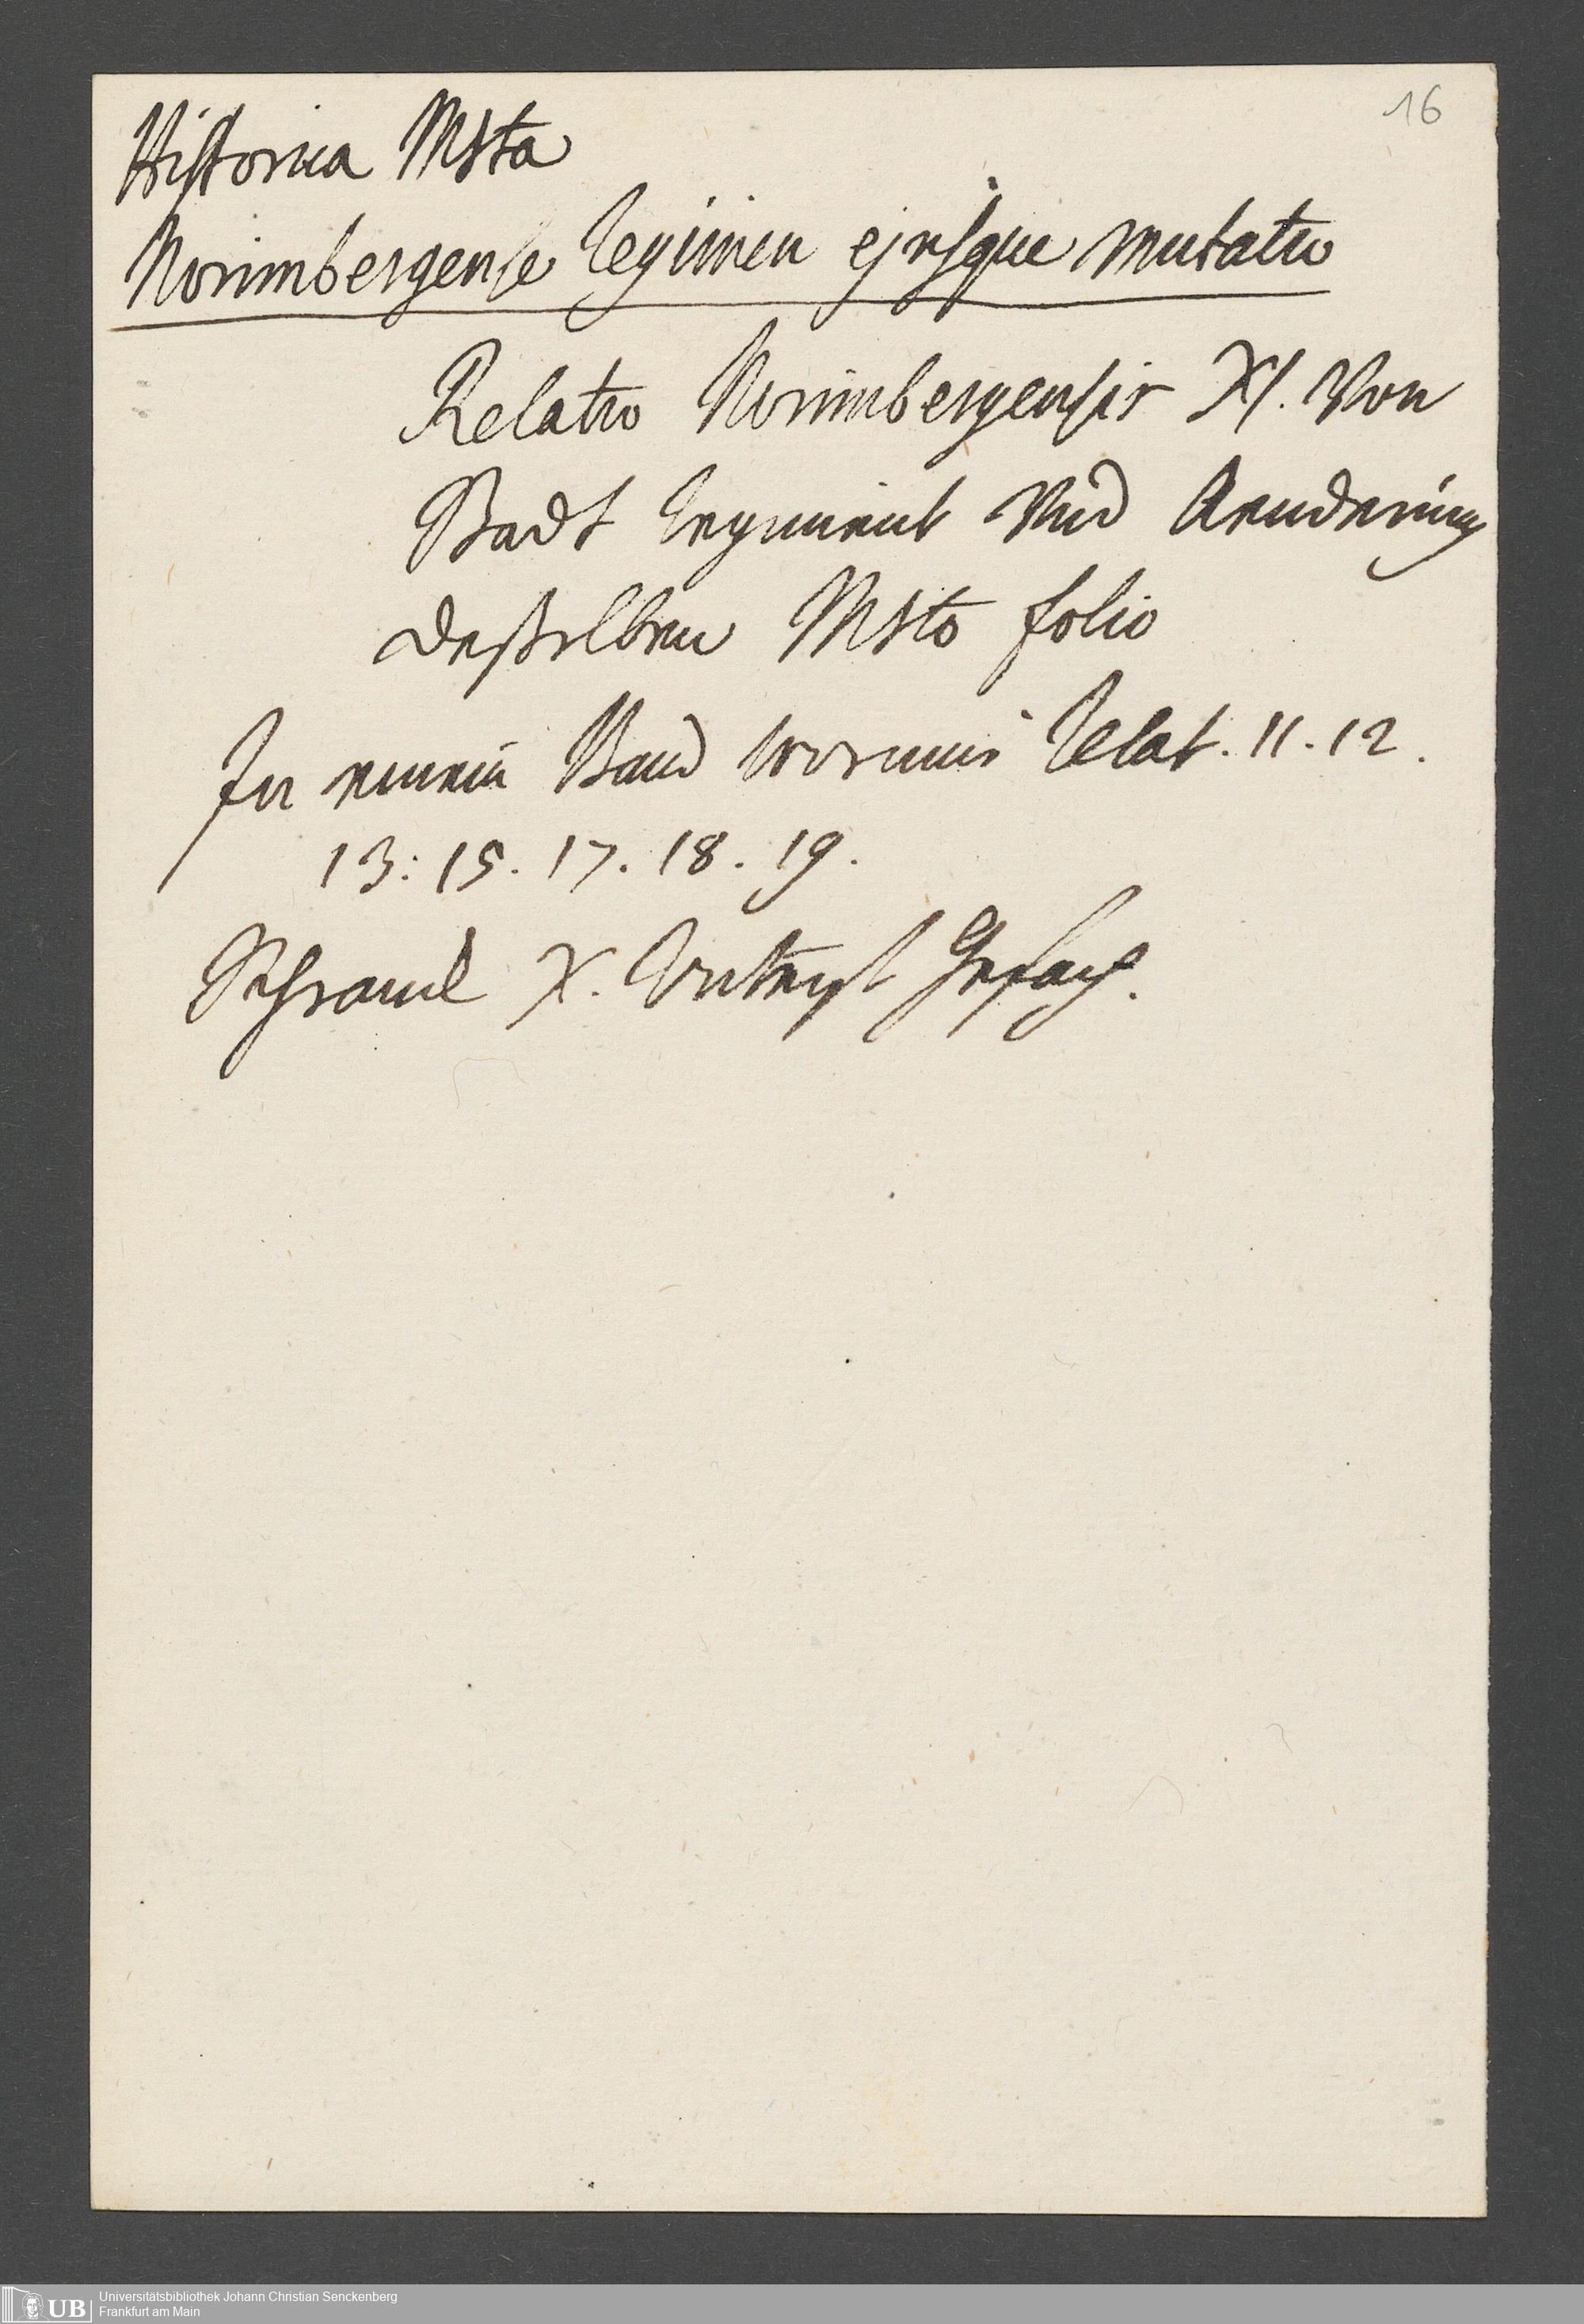 16
Historica Msta
Norimbergense Regimen ejusque mutatio
Relatio Norimbergensis XI. Von
Stadt Regiment Und Aenderung
deßelben Msto folio
In einem Band worinnen Relat. 11. 12.
13: 15. 17. 18. 19.
Schranck X. Unterst Gefach.
UB Universitätsbibliothek Johann Christian Senckenberg
Frankfurt am Main